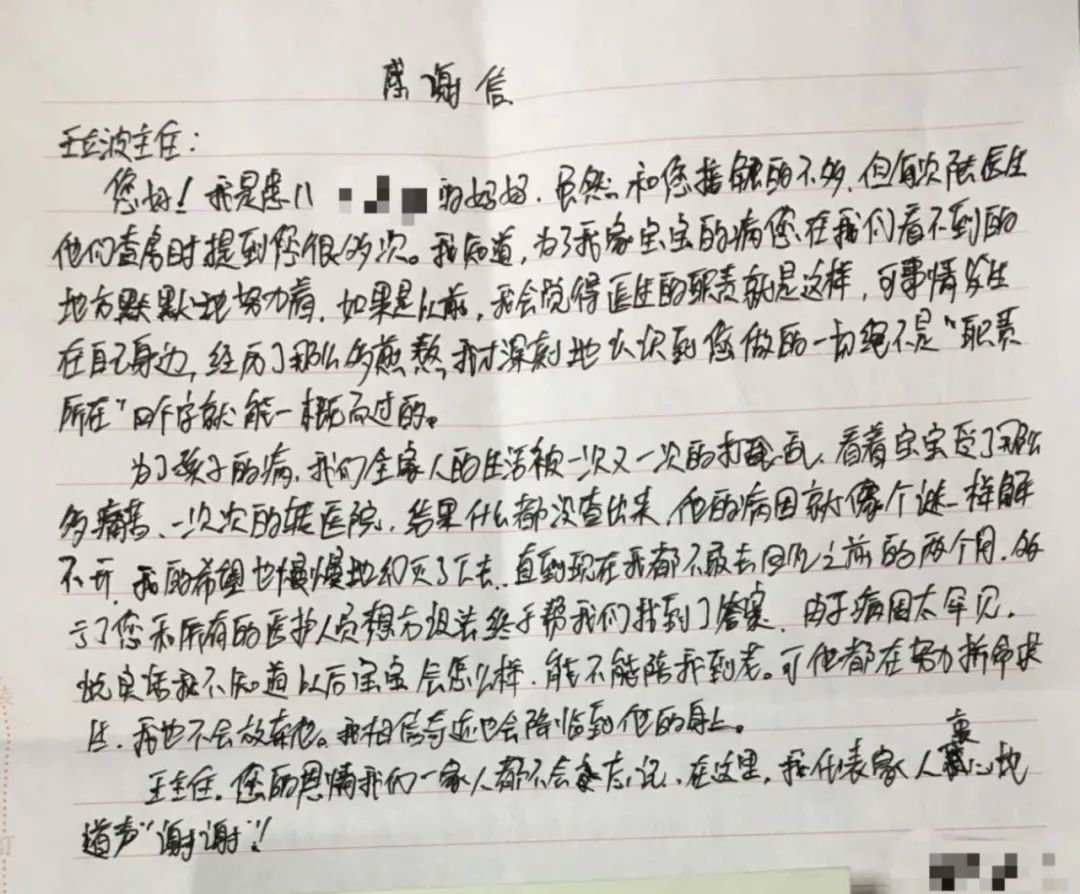 感谢信
王立波主任：
您好！我是患儿的妈妈，虽然和您接触的不多，但每次陆医生
他们查房时提到您很多次。我知道，为了我家宝宝的病您在我们看不到的
地方默默地努力着，如果是以前，我会觉得医生的职责就是这样，可事情发生
在自己身边，经历了那么多煎熬，我才深刻地认识到您做的一切绝不是“职责
所在”四个字就能一概而过的。
为了孩子的病，我们全家人的生活被一次又一次的打乱，看着宝宝受了那么
多痛苦、一次次的转医院，结果什么都没查出来，他的病因就像个谜一样解
不开，我的希望也慢慢地幻灭了下去，直到现在我都不敢去回忆之前的两个月，多
亏了您和所有的医护人员想方设法终于帮我们找到了答案，由于病因太罕见，
说实话我不知道以后宝宝会怎么样，能不能陪我到老。可他都在努力拼命求
生，我也不会放弃他。我相信奇迹也会降临到他的身上。
王主任，您的恩情我们一家人都不会忘记，在这里，我代表家人衷心地
道声“谢谢”！